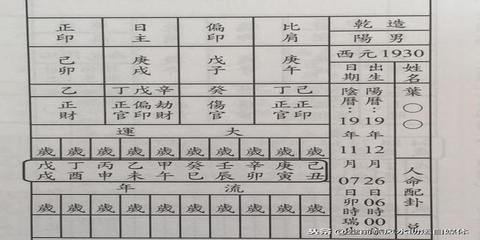 乾造
陽男
西元1930
姓名 葉○○
出生日期
陽曆:19年12月26日06時00
陰曆:19年11月07日卯時瑞
人命配卦 兌
正印 日主 偏印 比肩
己卯 庚戌 戊子 庚午
乙 丁戊辛 癸 丁己
正財 正官 偏印 劫財 傷官 正官 正印
大運
歲 歲 歲 歲 歲 歲 歲 歲 歲 歲
戊戌 丁酉 丙申 乙未 甲午 癸巳 壬辰 辛卯 庚寅 己丑
流年
歲 歲 歲 歲 歲 歲 歲 歲 歲 歲